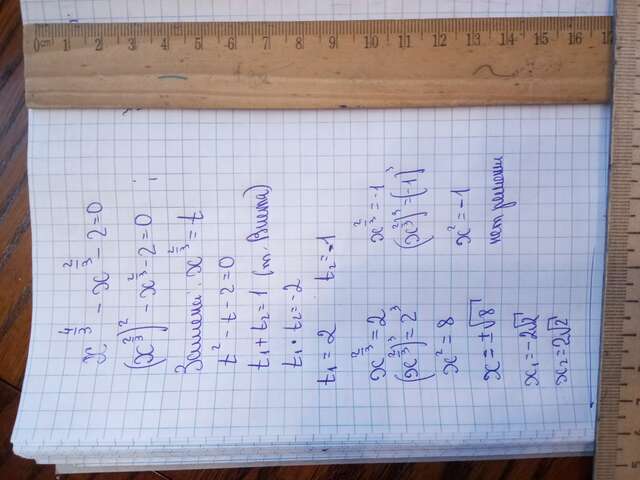 0 cm 1 2 3 4 5 6 7 8 9 10 11 12 13 14 15 16 17
x^(4/3) - x^(2/3) - 2 = 0
(x^(2/3))^2 - x^(2/3) - 2 = 0
Замена: x^(2/3) = t
t^2 - t - 2 = 0
t1 + t2 = 1 (т. Виета)
t1 · t2 = -2
t1 = 2 t2 = -1
x^(2/3) = 2
(x^(2/3))^3 = 2^3
x^2 = 8
x = ±√8
x1 = -2√2
x2 = 2√2
x^(2/3) = -1
(x^(2/3))^3 = (-1)^3
x^2 = -1
нет решений